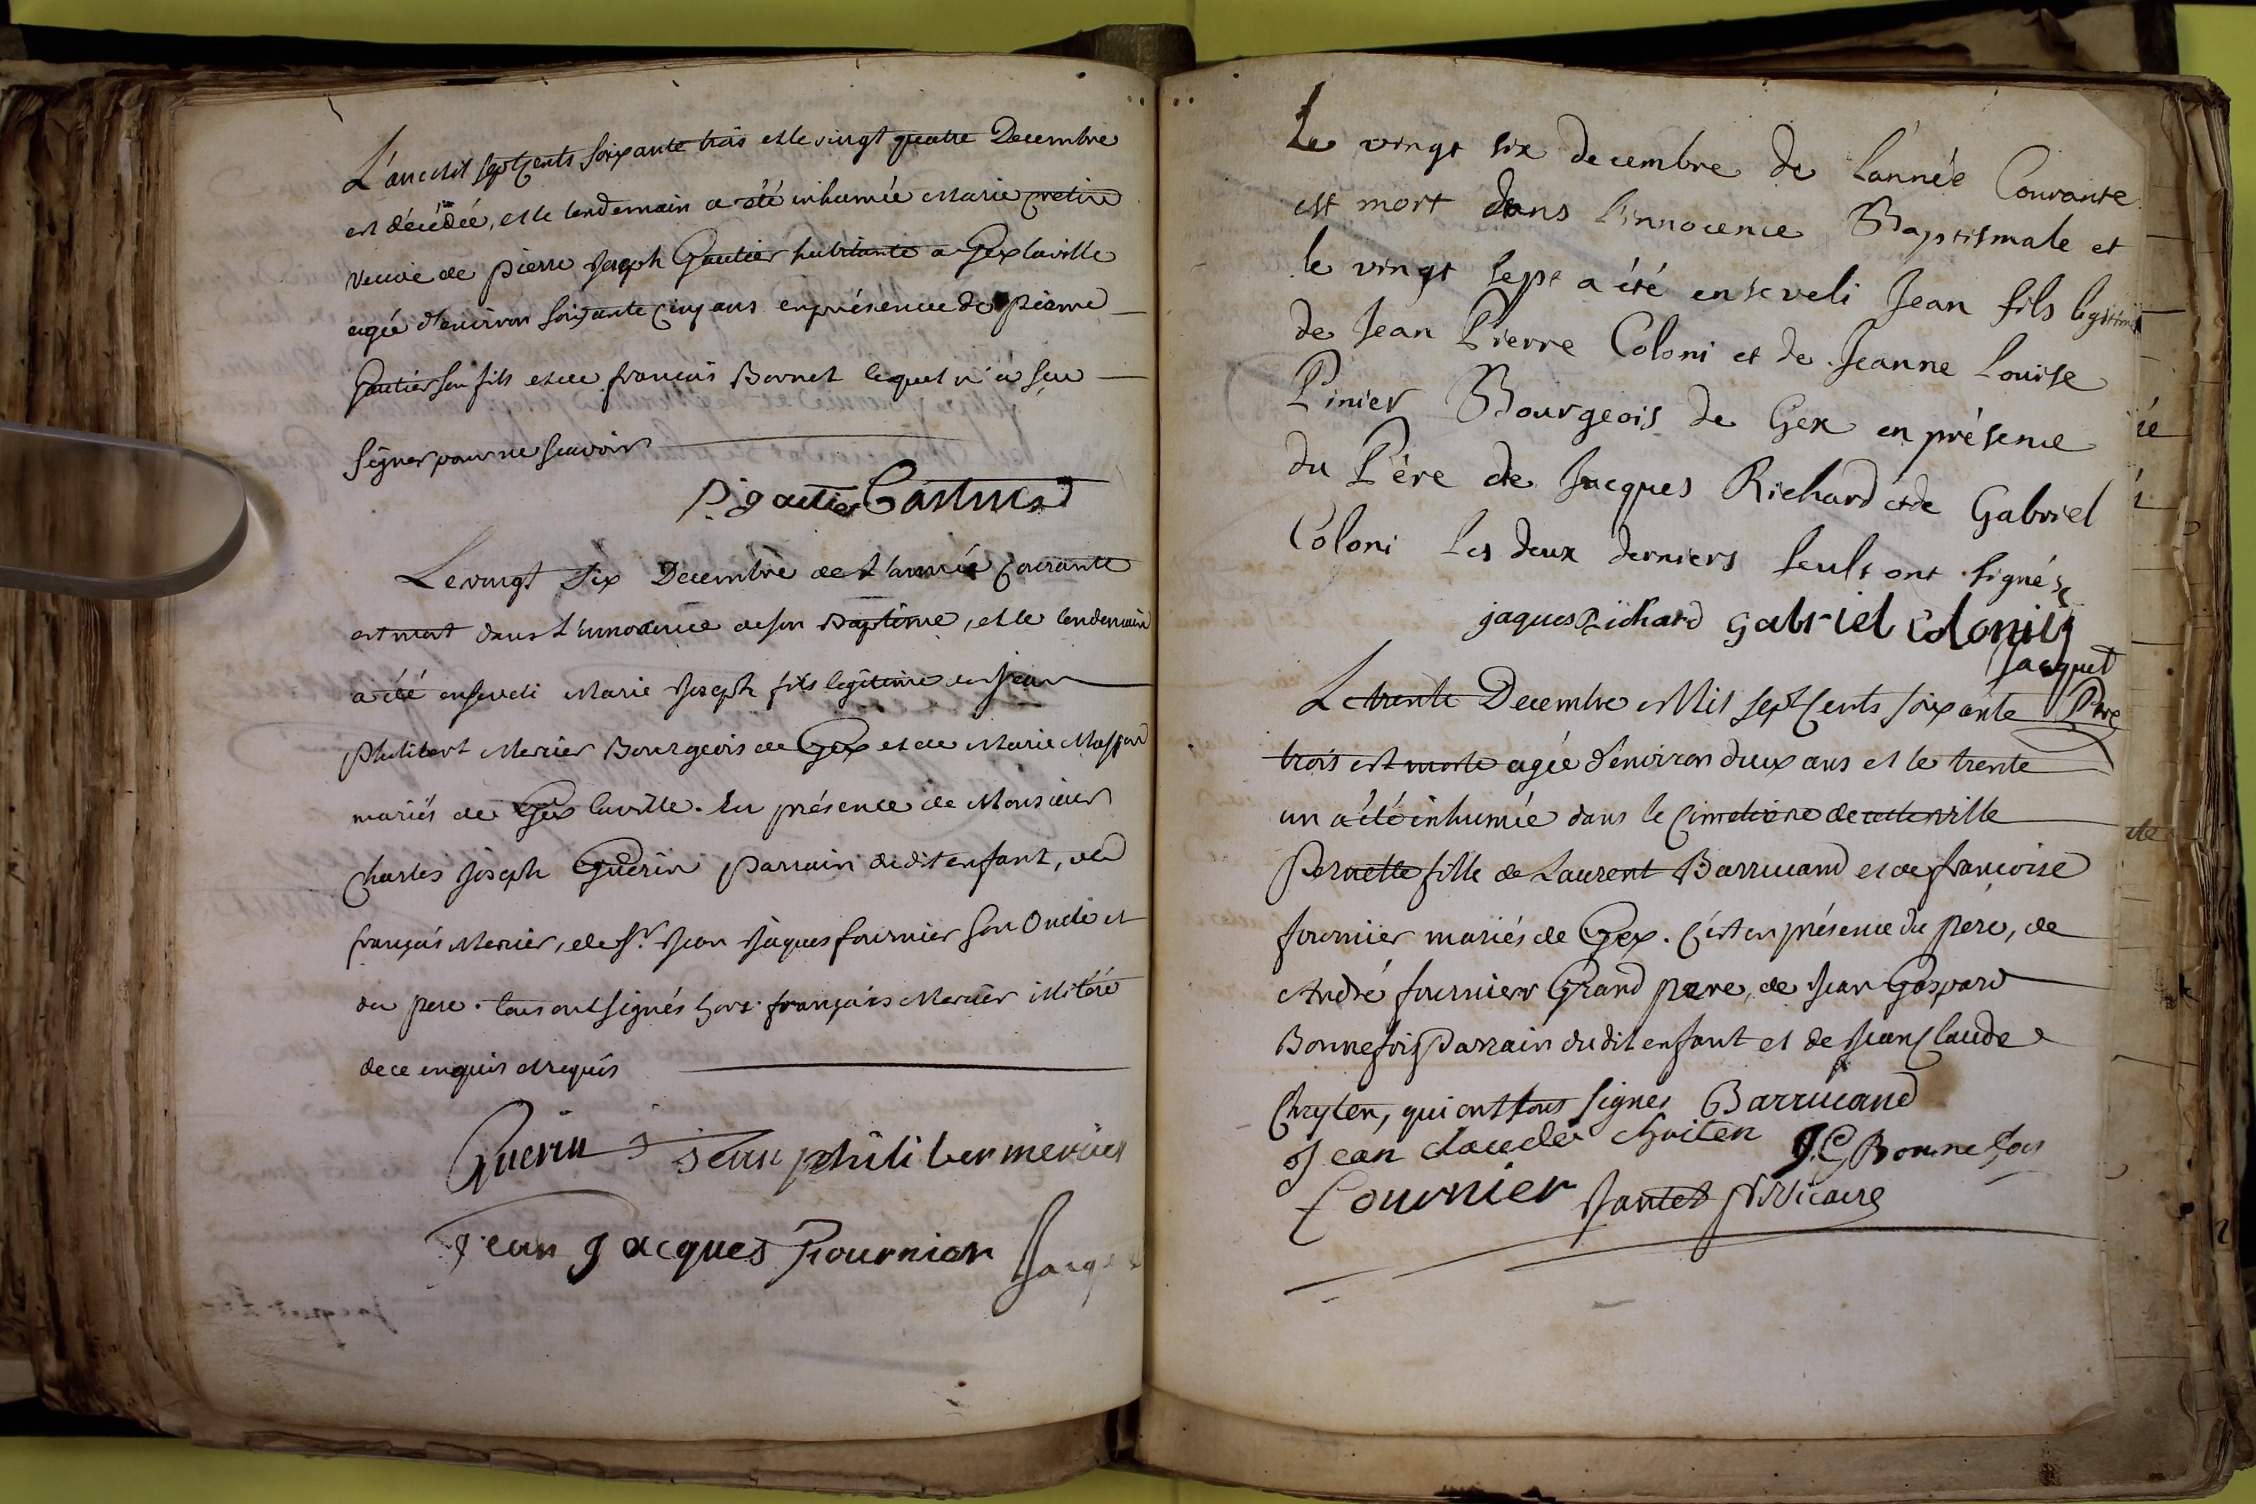 L'an mil sept cents soixante trois et le vingt quatre Decembre
est décédée, et le lendemain a été inhumée Marie
veuve de pierre Joseph Gautier habitante a Gex la ville
agée d'environ soixante cinq ans en présence de pierre
Gautier son fils et de françois Bornet lequel n'a sçu
signer pour ne scavoir
P. gautier Castin
Le vingt six Decembre de L'année courante
est mort dans L'innocence de son Baptême, et le lendemain
a été enseveli Marie Joseph fils legitime de Jean
Philibert Mercier Bourgeois de Gex et de Marie Masson
mariés de Gex la ville. En présence de Monsieur
Charles Joseph Guerin Parrain dudit enfant, de
françois Mercier, de Sr. Jean Jaques fournier son Oncle et
du pere. tous ont signés hors françois Mercier illitéré
de ce enquis et requis
Guerin Jean philiber mercier
Jean Jacques Fournier Jacq
Le vingt six decembre de l'année Courante
est mort dans l'innocence Baptismale et
le vingt sept a été enseveli Jean fils legitime
de Jean Pierre Coloni et de Jeanne Louise
Pinier Bourgeois de Gex en présence
du Père de Jacques Richard et de Gabriel
Coloni Les deux derniers seuls ont signés
jaques Richard gabriel Colonis
Jacquet
Le trente Decembre Mil sept cents soixante Ptre
trois est morte agée d'environ deux ans et le trente
un a été inhumée dans le cimetiere de cette ville
Pernette fille de Laurent Barrucand et de françoise
fournier mariés de Gex. C'est en présence du pere, de
André fournier Grand pere, de Jean Gaspard
Bonnefois Parrain dudit enfant et de Jean Claude
Chryten, qui ont tous signés Barrucand
Jean claude chriten J.G Bonnefoy
fournier Jantet Vicaire